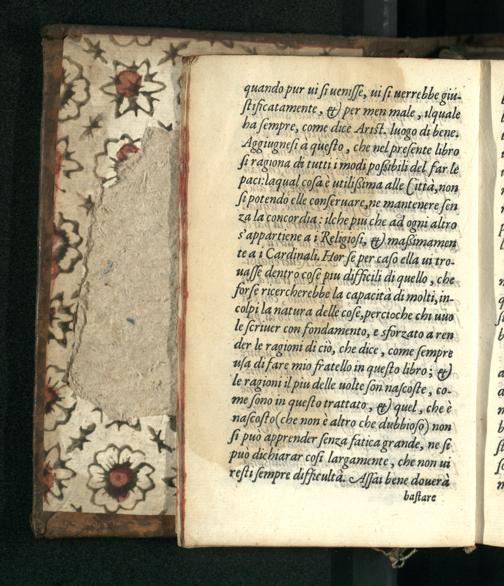 quando pur ui si uenisse, ui si uerrebbe giu-
stificatamente, & per men male, ilquale
ha sempre, come dice Arist. luogo di bene.
Aggiugnesi à questo, che nel presente libro
si ragiona di tutti i modi possibili del far le
paci: laqual cosa è utilissima alle Città, non
si potendo elle conseruare, ne mantenere sen
za la concordia: ilche più che ad ogni altro
s'appartiene a i Religiosi, & massimamen
te a i Cardinali. Hor se per caso ella ui tro-
uasse dentro cose piu difficili di quello, che
forse ricercherebbe la capacità di molti, in-
colpi la natura delle cose, percioche chi uuo
le scriuer con fondamento, e sforzato a ren
der le ragioni di ciò, che dice, come sempre
usa di fare mio fratello in questo libro; &
le ragioni il piu delle uolte son nascoste, co-
me sono in questo trattato, & quel, che è
nascosto (che non è altro che dubbioso) non
si può apprender senza fatica grande, ne si
può dichiarar così largamente, che non ui
resti sempre difficultà. Assai bene douerà
bastare